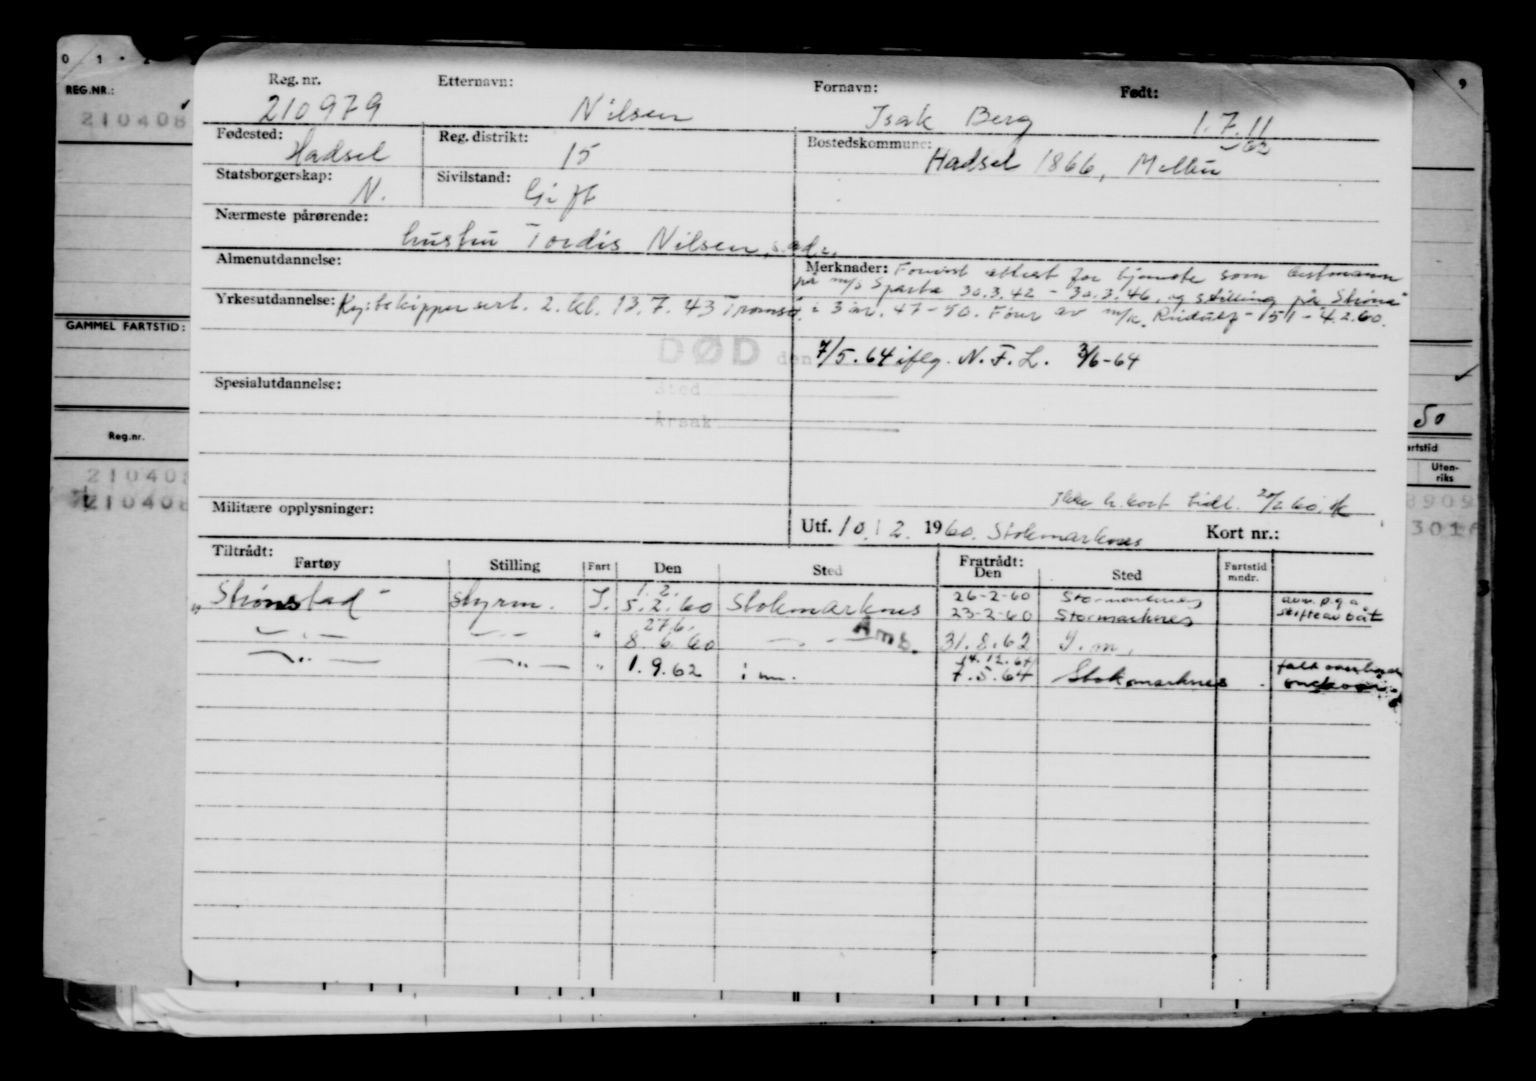 0 1 . 2
9
REG.NR.:
210408
GAMMEL FARTSTID:
Reg.nr.
210408
210408
50
artstid
Uten-
riks
8909
301
Reg. nr. Etternavn: Fornavn: Født:
210979 Nilsen Isak Berg 1.7.11
Fødested: Reg. distrikt: Bostedskommune:
Hadsel 15 Hadsel 1866, Melbu
Statsborgerskap: Sivilstand:
N. Gift
Nærmeste pårørende:
hustru Tordis Nilsen, s. adr.
Almenutdannelse: Merknader: Forevist attest for tjeneste som bestmann
på m/s Sparta 30.3.42 - 30.3.46, og stilling på "Strønst"
Yrkesutdannelse: Kystskippersert. 2. kl. 13.7.43 Tromsø. i 3 år. 47-50. Fører av m/k. - 151 - 4.2.60.
DØD den 7/5.64 iflg. N.F.L. 3/6-64
Sted
Årsak
Spesialutdannelse:
Ikke h.kort tidl. 20/2.60.
Militære opplysninger:
Utf. 10.2. 1960. Stokmarknes Kort nr.:
Tiltrådt: Fratrådt:
Fartøy Stilling Fart Den Sted Den Sted Fartstid mndr.
1.2. 26-2-60 Stormarknes avm. p.g.a.
Strønstad styrm. I. 5.2.60 Stokmarknes 23-2-60 Stormarknes skifte av båt
27.6.
— " — — " — " 8.6.60 — " — Amb. 31.8.62 I.m.
14.12.64 falt overbord
— " — — " — " 1.9.62 i m. 7.5.64 Stokmarknes